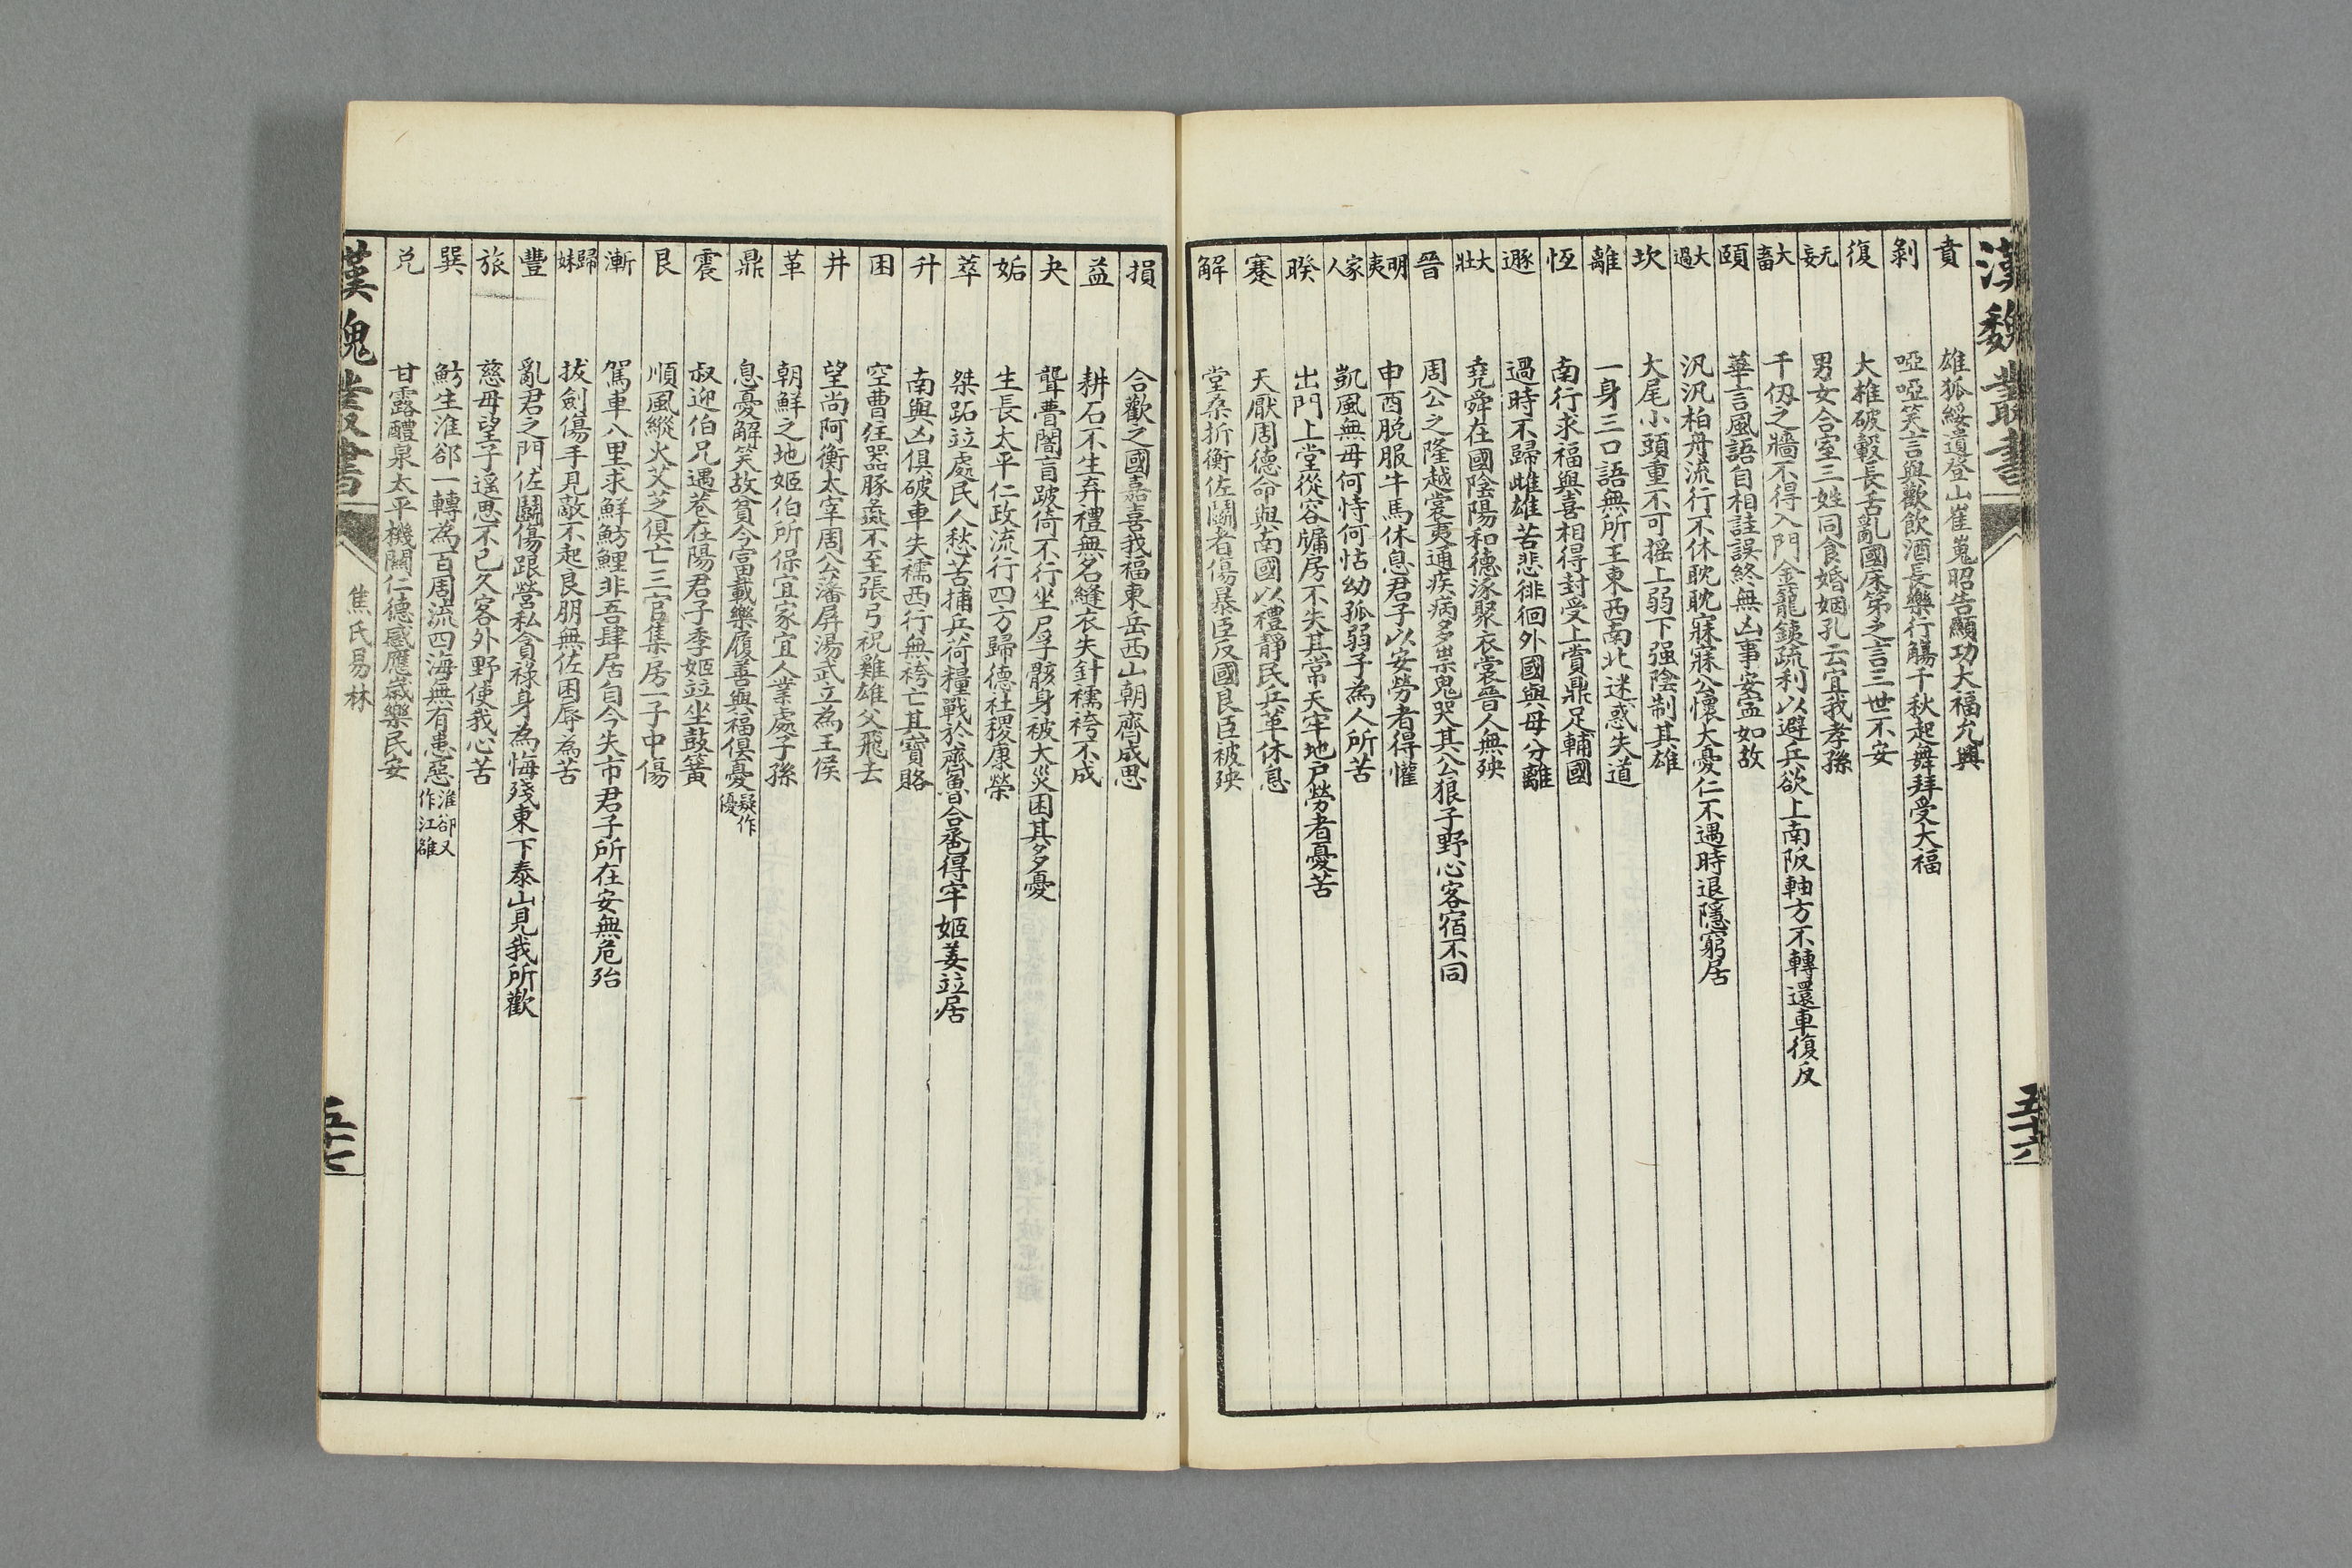 漢魏叢書
五十六
賁 雄狐綏遺登山崔嵬昭告顯功大福允興
剝 啞啞笑言與歡飲酒長樂行觴千秋起舞拜受大福
復 大椎破轂長舌亂國床笫之言三世不安
无妄 男女合室三姓同食婚姻孔云宜我孝孫
大畜 千仭之牆不得入門金籠鐵疏利以避兵欲上南阪軸方不轉還車復反
頤 華言風語自相詿誤終無凶事安寍如故
大過 汎汎柏舟流行不休耿耿寐寐公懷大憂仁不遇時退隱窮居
坎 大尾小頭重不可搖上弱下强陰制其雄
離 一身三口語無所主東西南北迷惑失道
恆 南行求福與喜相得封受上賞鼎足輔國
遯 過時不歸雌雄苦悲徘徊外國與母分離
大壯 堯舜在國陰陽和德涿聚衣裳晉人無殃
晉 周公之隆越裳夷通疾病多祟鬼哭其公狼子野心客宿不同
明夷 申酉脱服牛馬休息君子以安勞者得懽
家人 凱風無母何恃何怙幼孤弱子為人所苦
暌 出門上堂從容牖房不失其常天牢地戸勞者憂苦
蹇 天厭周德命與南國以禮靜民兵革休息
解 堂桑折衡佐鬬者傷暴臣反國良臣被殃
損 合歡之國嘉喜我福東岳西山朝齊成思
益 耕石不生弃禮無名縫衣失針襦袴不成
夬 聾瞢闇盲跛倚不行坐尸孚骸身被大災困其多憂
姤 生長太平仁政流行四方歸德社稷康榮
萃 桀跖竝處民人愁苦捕兵荷糧戰於齊魯合巹得牢姬姜竝居
升 南與凶俱破車失襦西行無袴亡其寶賂
困 空曹注器豚彘不至張弓祝雞雄父飛去
井 望尚阿衡太宰周公藩屏湯武立為王侯
革 朝鮮之地姬伯所保宜家宜人業處子孫
鼎 息憂解笑故貧今富載樂履善與福俱憂 疑作優
震 叔迎伯兄遇巷在陽君子季姬竝坐鼓簧
艮 順風縱火艾芝俱亡三官集房一子中傷
漸 駕車入里求鮮魴鯉非吾肆居自今失市君子所在安無危殆
歸妹 拔劍傷手見敵不起良朋無佐困辱為苦
豐 亂君之門佐鬬傷跟營私貪祿身為悔殘東下泰山見我所歡
旅 慈母望子遥思不已久客外野使我心苦
巽 魴生淮郤一轉為百周流四海無有患惡 淮郤又作江雒
兑 甘露醴泉太平機關仁德感應歲樂民安
漢魏叢書
焦氏易林
五十七